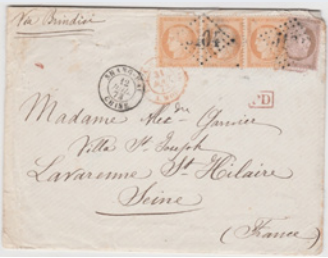 Via Brindisi
SHANG-HAI
CHINE
PD
Madame
Villa St Joseph
Lavarenne St Hilaire
Seine
(France)